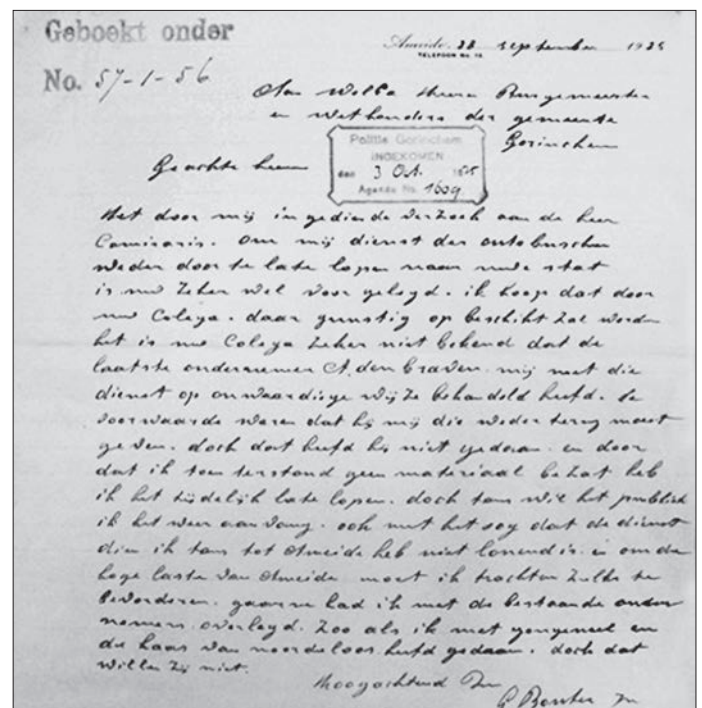 Geboekt onder
No. 57-1-56
Ameide, 28 september 1925
TELEFOON No. 13
Aan Welle Heere Burgemeester
en wethouders der gemeente
Gorinchem
Politie Gorinchem
INGEKOMEN
den 3 Oct. 1925
Agenda No. 1609
Geachte heere
Het door mij ingediende verzoek aan de heer
Comisaris. om mij dienst der autobussen
weder door te late lopen naar uwe stat
is uw zeker wel voor gelegd. ik hoop dat door
uw Colega. daar gunstig op beschikt zal worden
het is uw Colega zeker niet bekend dat de
laatste ondernemer A. den Braven. mij met die
dienst op onwaardige wijze behandeld heefd. de
voorwaarde waren dat hij mij die weder terug moest
geven. doch dat heefd hij niet gedaan. en door
dat ik toen terstond geen materiaal bezat heb
ik het tijdelijk late lopen. doch tans wil het publiek
ik het weer aanvang. ook met het oog dat de dienst
dien ik tans tot Ameide heb niet lonend is. en om de
hoge laste van Ameide moet ik trachten zulks te
bevorderen. gaarne had ik met de bestaande onder
nemers overlegd. zoo als ik met gengeneel en
de haas van noordeloos heefd gedaan. doch dat
willen zij niet.
Hoogachtend